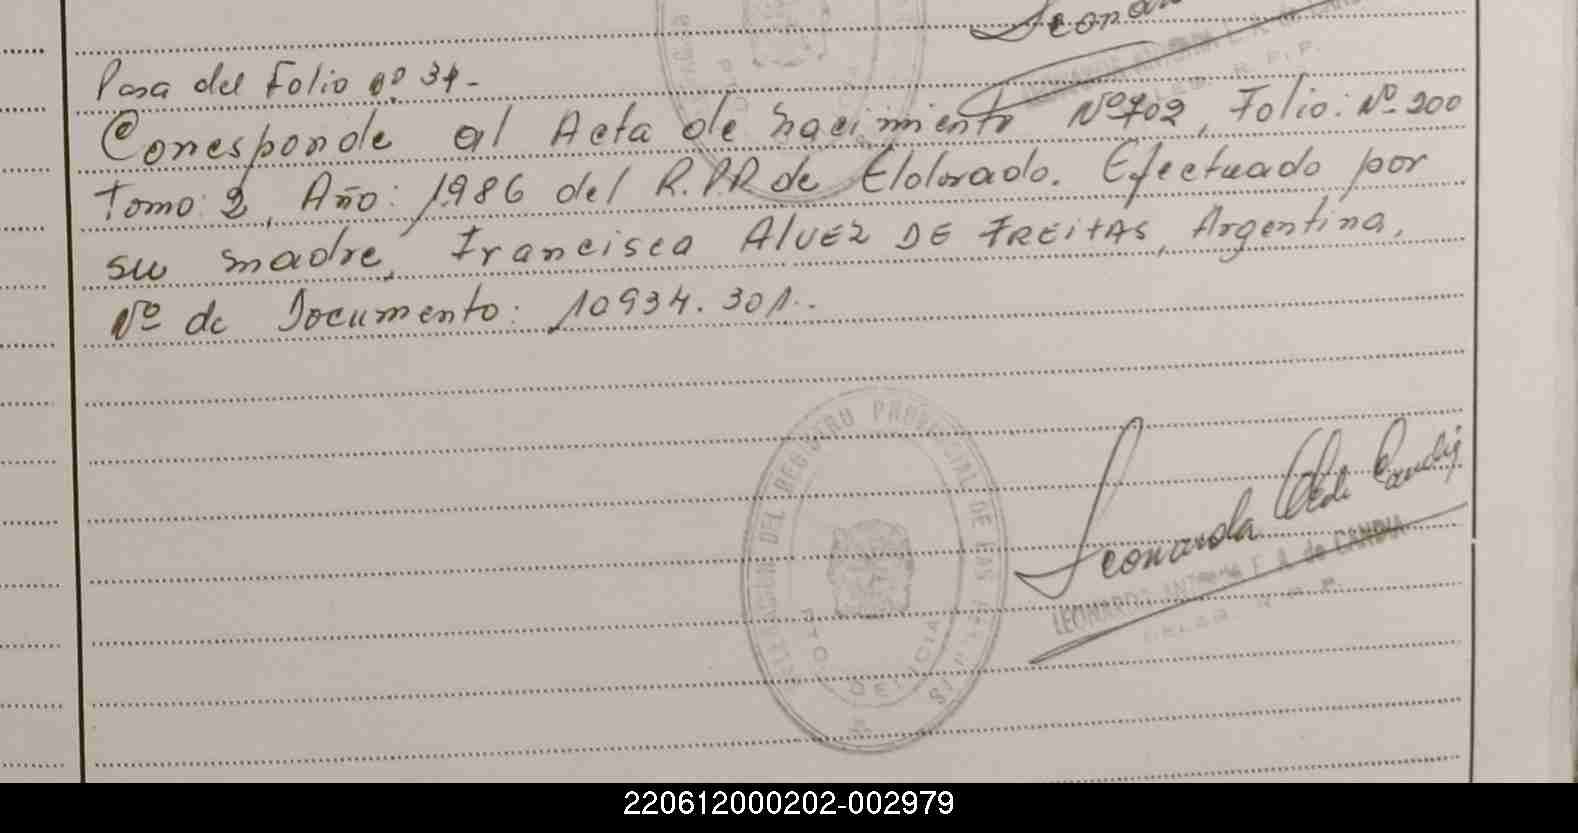 Leonar
Pasa del Folio nº 34-
Corresponde al Acta de nacimiento Nº 702, Folio: Nº 200
Tomo: 2, Año: 1986 del R.P.P. de Eldorado. Efectuado por
su madre, Francisca Alvez DE FREITAS, Argentina,
Nº de Documento: 10934.301.-
DEL REGISTRO PROVINCIAL DE LAS PERS
PTO DELICIA
Leonarda A. de Candia
LEONARDA ANTONIA F. A. de CANDIA
DELEG. R. P. P.
220612000202-002979